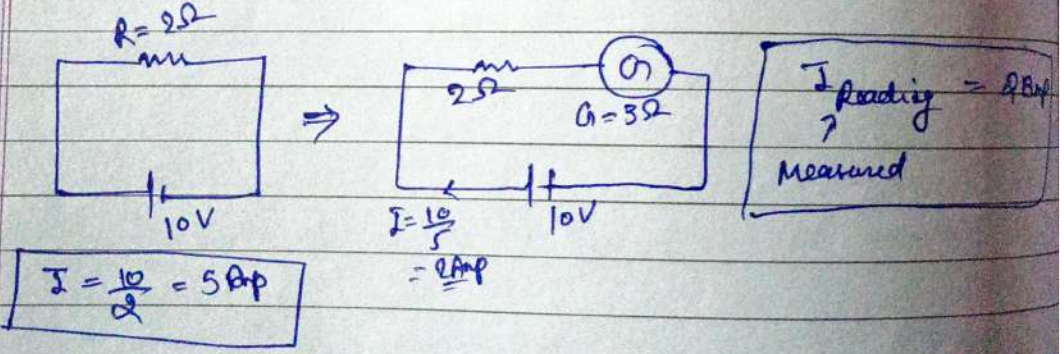 R = 2Ω
10V
I = 10/2 = 5 Amp
⇒
2Ω
G
G = 3Ω
10V
I = 10/5
= 2Amp
I Reading = 2Amp
↗
Measured